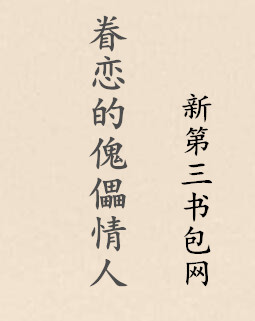 眷恋的傀儡情人
新第三书包网